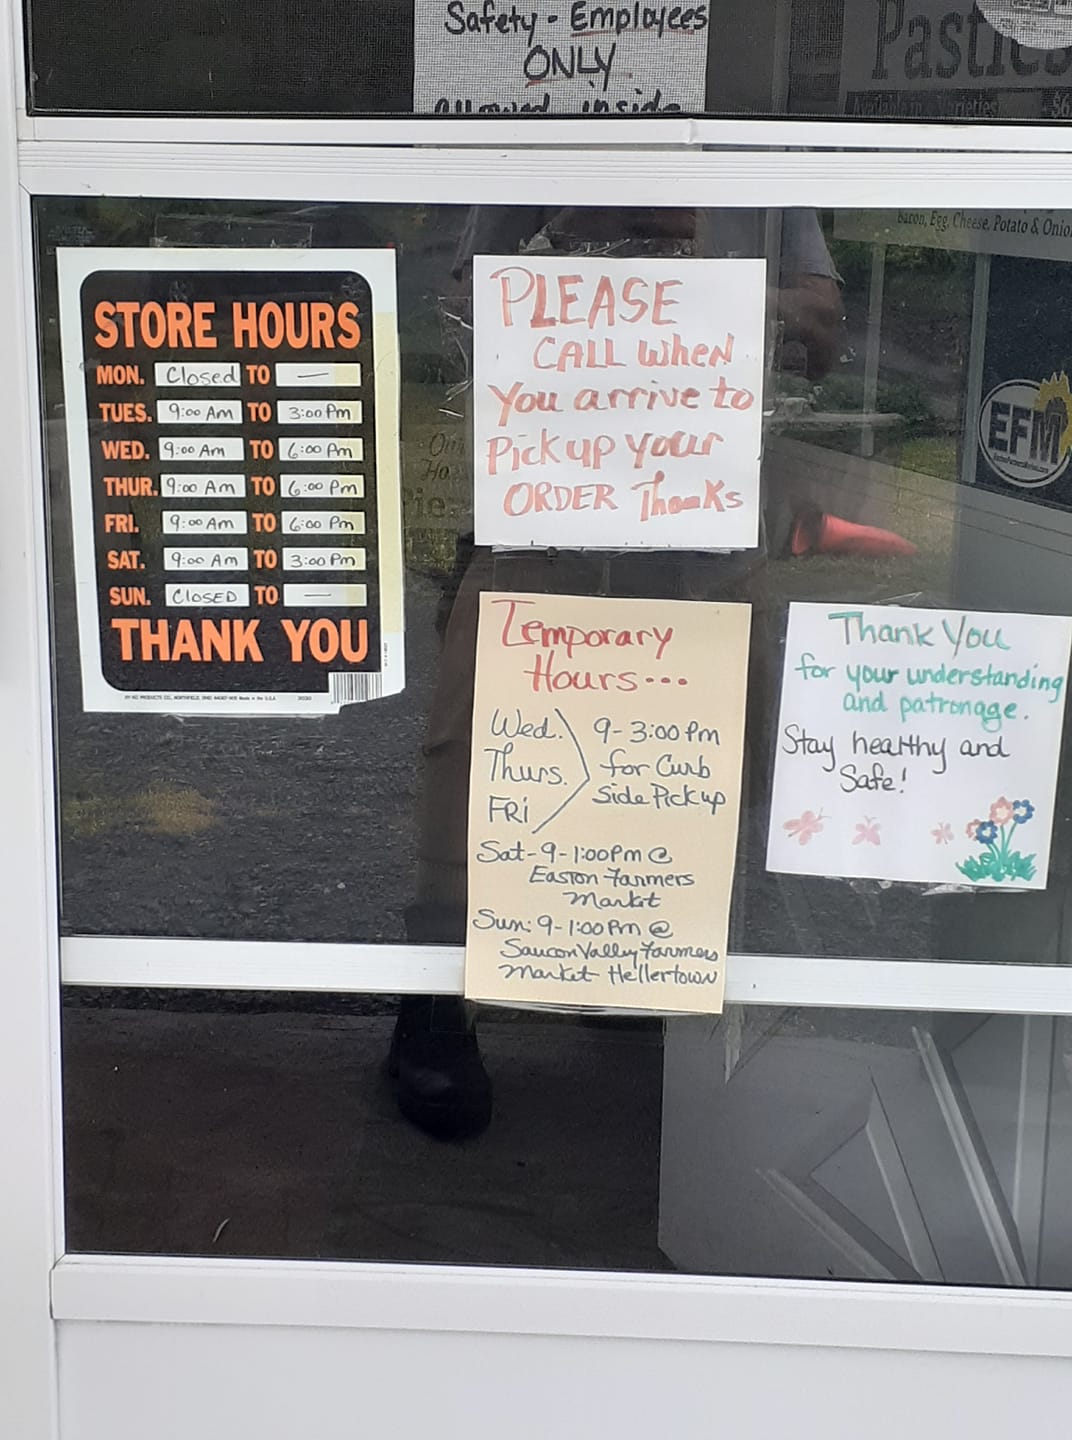 Safety - Employees
ONLY
allowed inside
Pasties
Available in 6 Varieties
Bacon, Egg, Cheese, Potato & Onion
STORE HOURS
MON. Closed TO —
TUES. 9:00 Am TO 3:00 Pm
WED. 9:00 Am TO 6:00 Pm
THUR. 9:00 Am TO 6:00 Pm
FRI. 9:00 Am TO 6:00 Pm
SAT. 9:00 Am TO 3:00 Pm
SUN. CLOSED TO —
THANK YOU
PLEASE
CALL when
You arrive to
Pick up your
ORDER Thanks
EFM
Temporary
Hours...
Wed. 9-3:00 Pm
Thurs. for Curb
FRi Side Pickup
Sat-9-1:00Pm @
Easton Farmers
Market
Sun: 9-1:00 Pm @
Saucon Valley Farmers
Market Hellertown
Thank You
for your understanding
and patronage.
Stay healthy and
Safe!